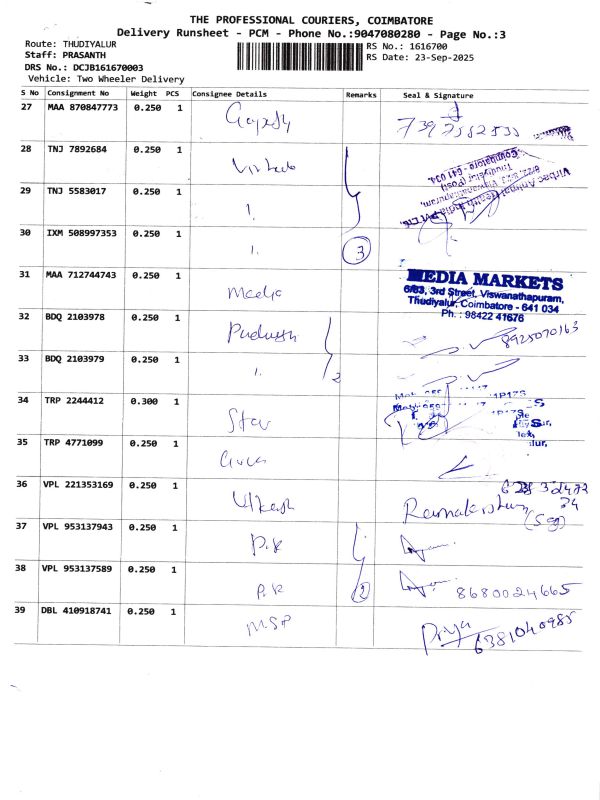 THE PROFESSIONAL COURIERS, COIMBATORE
Delivery Runsheet - PCM - Phone No.:9047080280 - Page No.:3
Route: THUDIYALUR
RS No.: 1616700
Staff: PRASANTH
RS Date: 23-Sep-2025
DRS No.: DCJB161670003
Vehicle: Two Wheeler Delivery
S No Consignment No Weight PCS Consignee Details Remarks Seal & Signature
27 MAA 870847773 0.250 1
28 TNJ 7892684 0.250 1
Virbac Animal Health India Pvt Ltd.,
8/22, 8/23 Viswanathapuram,
Thudiyalur (Post)
Coimbatore - 641 034.
29 TNJ 5583017 0.250 1 1.
30 IXM 508997353 0.250 1 1. 3
31 MAA 712744743 0.250 1 Media
MEDIA MARKETS
6/83, 3rd Street, Viswanathapuram,
Thudiyalur, Coimbatore - 641 034
Ph. : 98422 41676
32 BDQ 2103978 0.250 1 8925070163
33 BDQ 2103979 0.250 1 1. 2
34 TRP 2244412 0.300 1 Star
35 TRP 4771099 0.250 1
36 VPL 221353169 0.250 1 Ramakrishnan
(Sg)
37 VPL 953137943 0.250 1 P.K
38 VPL 953137589 0.250 1 P.K 2 8680024665
39 DBL 410918741 0.250 1 M.S.P Priya 6381040985